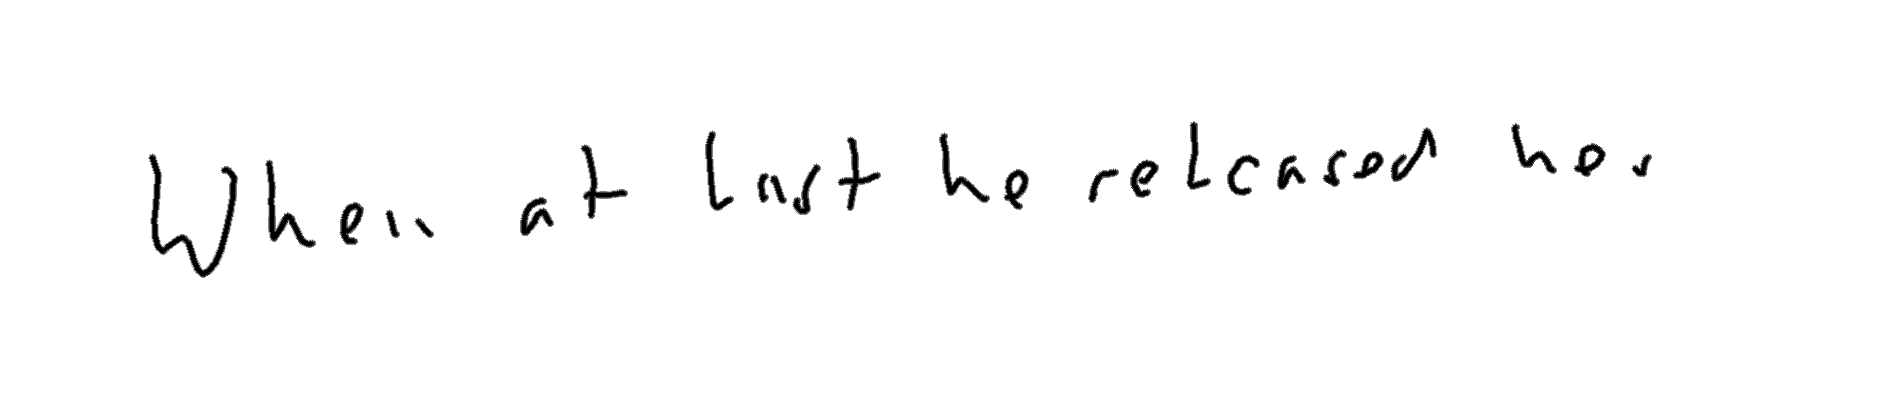 When at last he released her